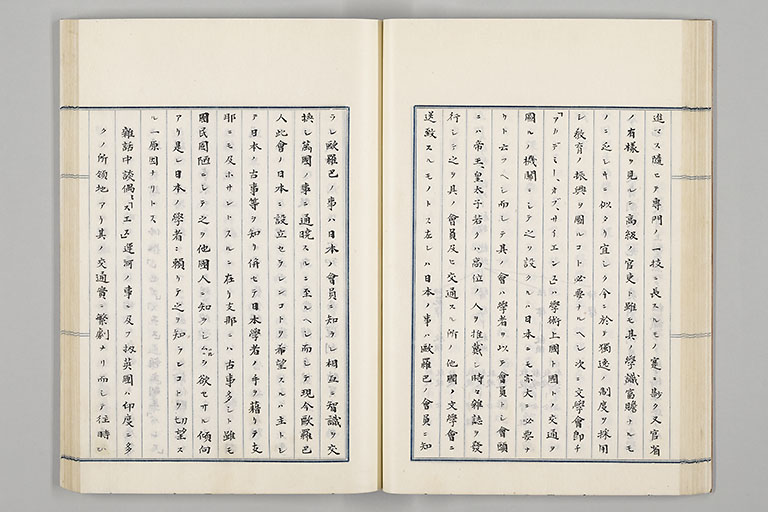 進マス隨ヒテ專門ノ一技ニ長スルモノ寔ニ尠ク又官省
ノ有樣ヲ見ルニ高級ノ官吏ト雖モ其ノ學識富贍ナルモ
ノニ乏シキニ似タリ宜シク今ニ於テ獨逸ノ制度ヲ採用
シ教育ノ振興ヲ圖ルコト必要ナルヘシ次ニ文學會即チ
「アカデミー、オブ、サイエンス」ハ學術上國ト國トノ交通ヲ
圖ルノ機關ニシテ之ヲ設クルハ日本ニモ亦大ニ必要ナ
リト云フヘシ而シテ其ノ會ハ學者ヲ以テ會員トシ會頭
ニハ帝王、皇太子若クハ高位ノ人ヲ推戴シ時々雜誌ヲ發
行シテ之ヲ其ノ會員及ヒ交通スル所ノ他國ノ文學會ニ
送致スルモノトス左レハ日本ノ事ハ歐羅巴ノ會員ニ知
ラレ歐羅巴ノ事ハ日本ノ會員ニ知ラレ相互ニ智識ヲ交
換シ萬國ノ事ニ通曉スルニ至ルヘシ而シテ現今歐羅巴
人此會ノ日本ニ設立セラレンコトヲ希望スルハ主トシ
テ日本ノ古事等ヲ知リ併セテ日本學者ノ手ヲ藉リテ支
那ニモ及ホサントスルニ在リ支那ニハ古事多シト雖モ
國民固陋ニシテ之ヲ他國人ニ知ラシムルヲ欲セサル傾向
アリ是レ日本ノ學者ニ賴リテ之ヲ知ランコトヲ切望ス
ル一原因ナリトス
雜話中談偶「スエズ」運河ノ事ニ及フ抑英國ハ印度ニ多
クノ所領地アリ其ノ交通實ニ繁劇ナリ而シテ往時ハ